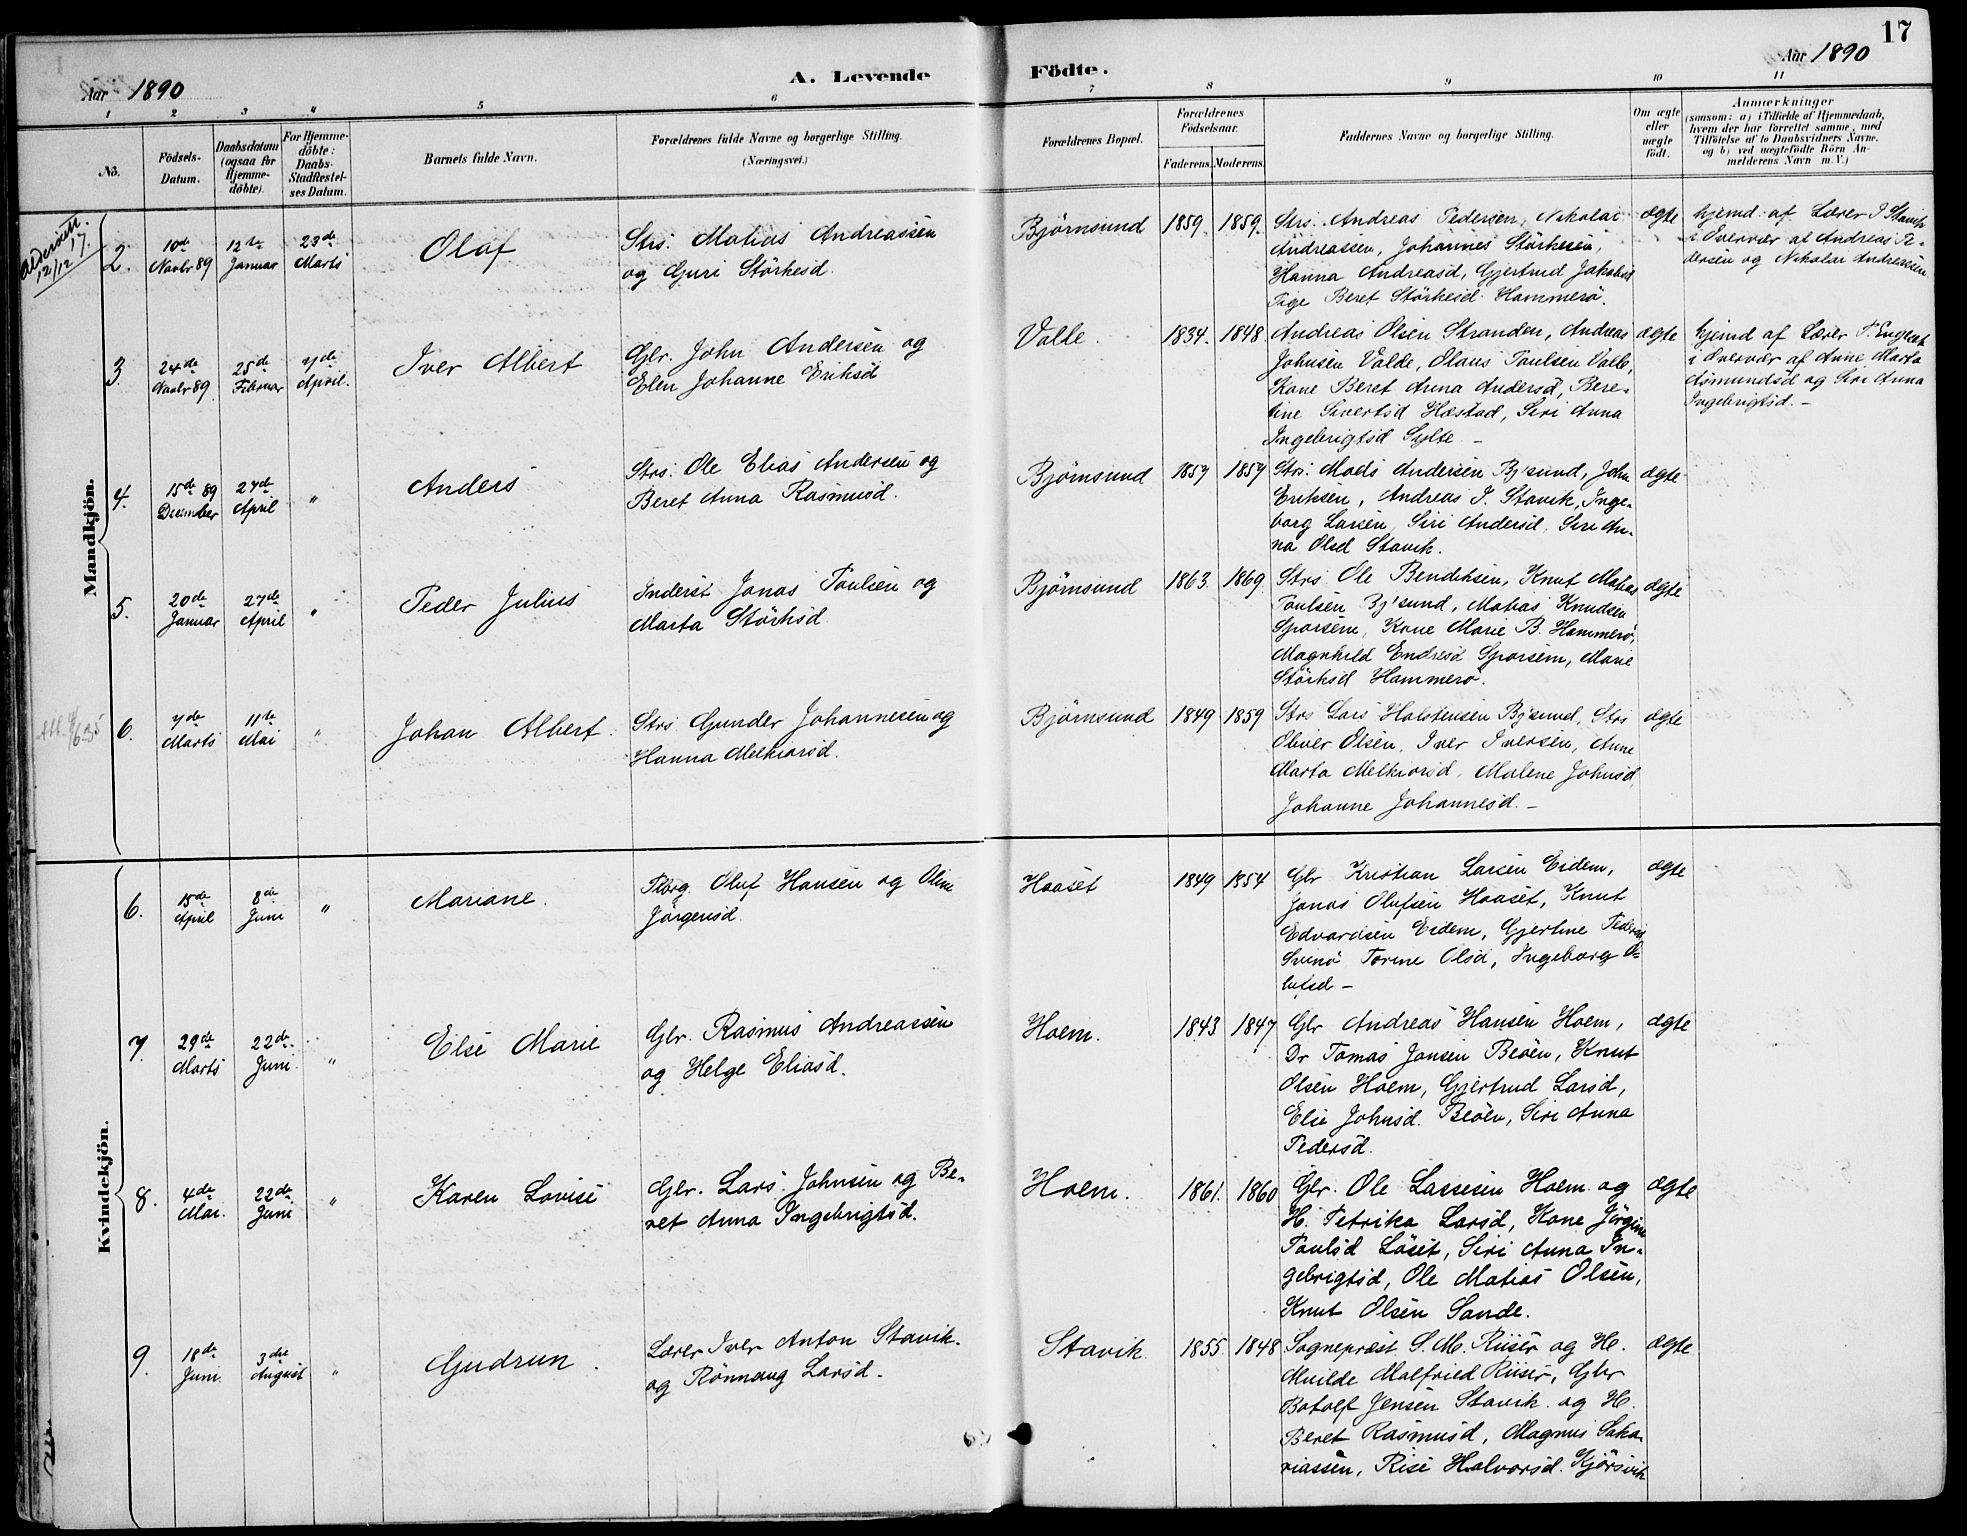 17
Aar 1890
A. Levende
Födte.
Aar 1890
1 2 3 4 5 6 7 8 9 10 11
No.
Födsels-
Datum.
Daabsdatum
(ogsaa for
Hjemme-
döbte).
For Hjemme-
döbte:
Daabs-
Stadfæstel-
ses Datum.
Barnets fulde Navn.
Forældrenes fulde Navne og borgerlige Stilling.
(Næringsvei.)
Forældrenes Bopæl.
Forældrenes
Födselsaar.
Faderens. Moderens.
Faddernes Navne og borgerlige Stilling.
Om ægte
eller
uægte
födt.
Anmærkninger
(saasom: a) i Tilfælde af Hjemmedaab,
hvem der har forrettet samme, med
Tilföielse af to Daabsvidners Navne,
og b) ved uægtefödte Börn An-
melderens Navn m. V.)
Mandkjön.
Aldersatt.
12/12 17
2.
10de
Novbr 89
12te
Januar
23de
Marts
Olaf
Strs. Matias Andreassen
og Guri Störkesd.
Bjørnsund
1859. 1859.
Strs. Andreas Pedersen, Nikolai
Andreassen, Johannes Störkesen,
Hanna Andreasd, Gjertrud Jakobsd
Pige Beret Störkesd. Hammerö.
ægte
hjemd. af Lærer I Stavik
i Overvær af Andreas Pe-
dersen og Nikolai Andreassen.
3.
24de
Novbr 89
25de
Februar
7de
April.
Iver Albert
Gbr. John Andersen og
Elen Johanne Eriksd
Valle.
1834. 1848.
Andreas Olsen Stranden, Andreas
Johnsen Valde, Olaus Paulsen Valle,
Kone Beret Anna Andersd, Bere-
tine Sivertsd Hæstad, Siri Anna
Ingebrigtsd Sylte. –
ægte
hjemd af Lærer P.
i Overvær af Anne Marta
Asmundsd og Siri Anna
Ingebrigtsd. –
4.
15de 89
December
27de
April
"
Anders
Strs. Ole Elias Andersen og
Beret Anna Rasmusd.
Bjørnsund
1857 1857
Strs. Mads Andersen Bj'sund, John
Eriksen, Andreas I. Stavik, Inge-
borg Larsen, Siri Andersd, Siri An-
na Olsd Stavik.
ægte
5.
20de
Januar
27de
April
"
Peder Julius
Inderst Jonas Paulsen og
Marta Störksd.
Bjørnsund
1863. 1869.
Strs. Ole Bendiksen, Knut Matias
Paulsen Bj'sund, Matias Knudsen
Sporsem, Kone Marie B. Hammerö,
Magnhild Endresd Sporsem, Marie
Störksd Hammerö.
ægte
6.
7de
Marts
11te
Mai
"
Johan Albert.
Strs Gunder Johannesen og
Hanna Melkiorsd.
Bjørnsund
1849 1859
Strs Lars Halstensen Bj'sund, Strs
Oliver Olsen, Iver Iversen, Anne
Marta Melkiorsd, Malene Johnsd,
Johanne Johannesd. –
ægte
Kvindekjön.
6.
15de
April
8de
Juni
"
Mariane.
Oluf Hansen og Oline
Jörgensd.
Haaset
1849 1854
Gbr Kristian Larsen Eidem,
Jonas Olufsen Haaset, Knut
Edvardsen Eidem, Gjertine Pedersd
Svinö Torine Olsd, Ingeborg O-
lufsd –
ægte
7.
29de
Marts
22de
Juni.
"
Else Marie
Gbr. Rasmus Andreassen
og Helge Eliasd.
Hoem.
1843 1847
Gbr Andreas Hansen Hoem,
Dr Tomas Jonsen Beöen, Knut
Olsen Hoem, Gjertrud Larsd,
Else Johnsd. Beöen, Siri Anna
Pedersd.
ægte
8.
4de
Mai.
22de
Juni
"
Karen Lovise
Gbr. Lars Johnsen og Be-
ret Anna Ingebrigtsd.
Hoem.
1861. 1860
Gbr. Ole Lassesen Hoem og
H. Petrika Larsd, Kone Jörgine
Paulsd Löset, Siri Anna In-
gebrigtsd, Ole Matias Olsen,
Knut Olsen Sande.
ægte
9.
18de
Juni.
3die
August
"
Gudrun.
Lærer Iver Anton Stavik.
og Rönnaug Larsd.
Stavik.
1855. 1848
Sognepræst S. M. Riiser og H.
Malfried Riiser, Gbr
Botolf Jensen Stavik. og H.
Beret Rasmusd, Magnus Saka-
riassen, Rise Halvorsd. Kjörsvik
ægte